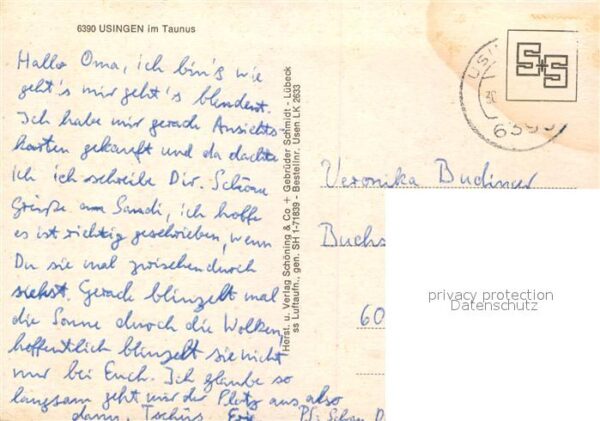 6390 USINGEN im Taunus
Hallo Oma, ich bin's wie
geht's mir geht's blendent.
Ich habe mir gerade Ansichts-
karten gekauft und da dachte
ich ich schreibe Dir. Schöne
Grüße an Sandi, ich hoffe
es ist richtig geschrieben, wenn
Du sie mal zwischendurch
siehst. Gerade blinzelt mal
die Sonne durch die Wolken,
hoffentlich blinzelt sie nicht
nur bei Euch. Ich glaube so
langsam geht mir der Platz aus, also
dann, Tschüs
P.S: Schau
Herst. u. Verlag Schöning & Co + Gebrüder Schmidt - Lübeck
ss Luftaufn., gen. SH 1-71839 - Bestellnr. Usen LK 2633
S+S
USI
639
Veronika Budiner
Buchs
60
privacy protection
Datenschutz